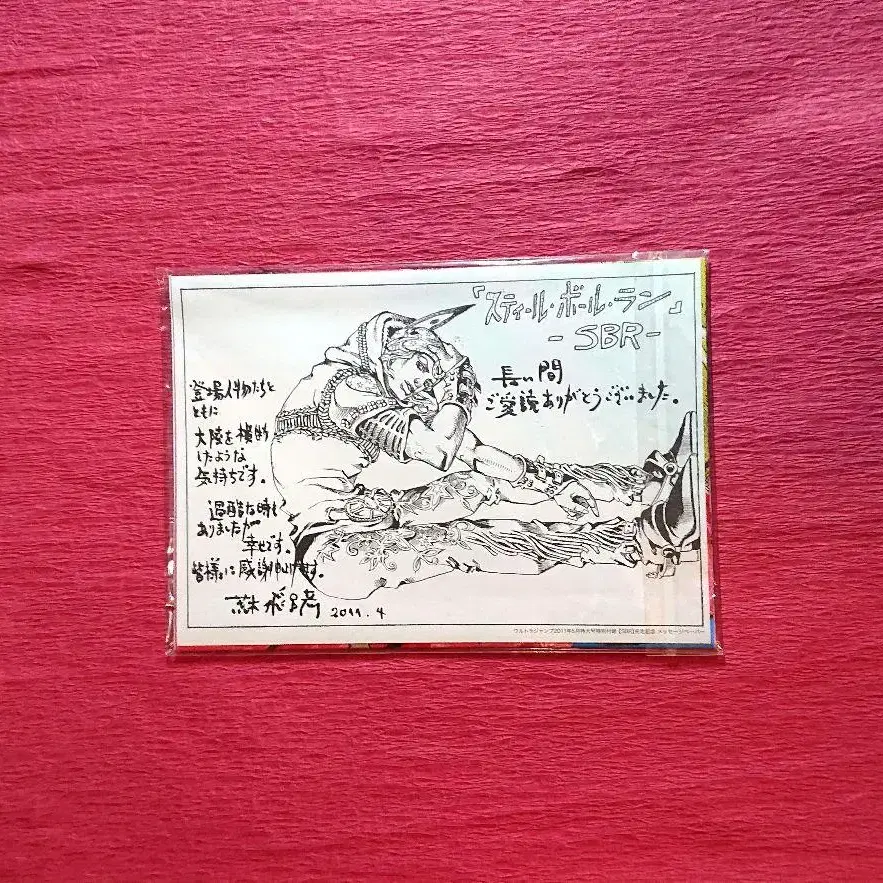 「スティール・ボール・ラン」
-SBR-
長い間
ご愛読ありがとうございました。
登場人物たちと
ともに
大陸を横断
したような
気持ちです。
過酷な時も
ありましたが
幸せです。
皆様に感謝申し上げます。
荒木飛呂彦 2011.4
ウルトラジャンプ2011年5月特大号特別付録【SBR】完走記念 メッセージペーパー